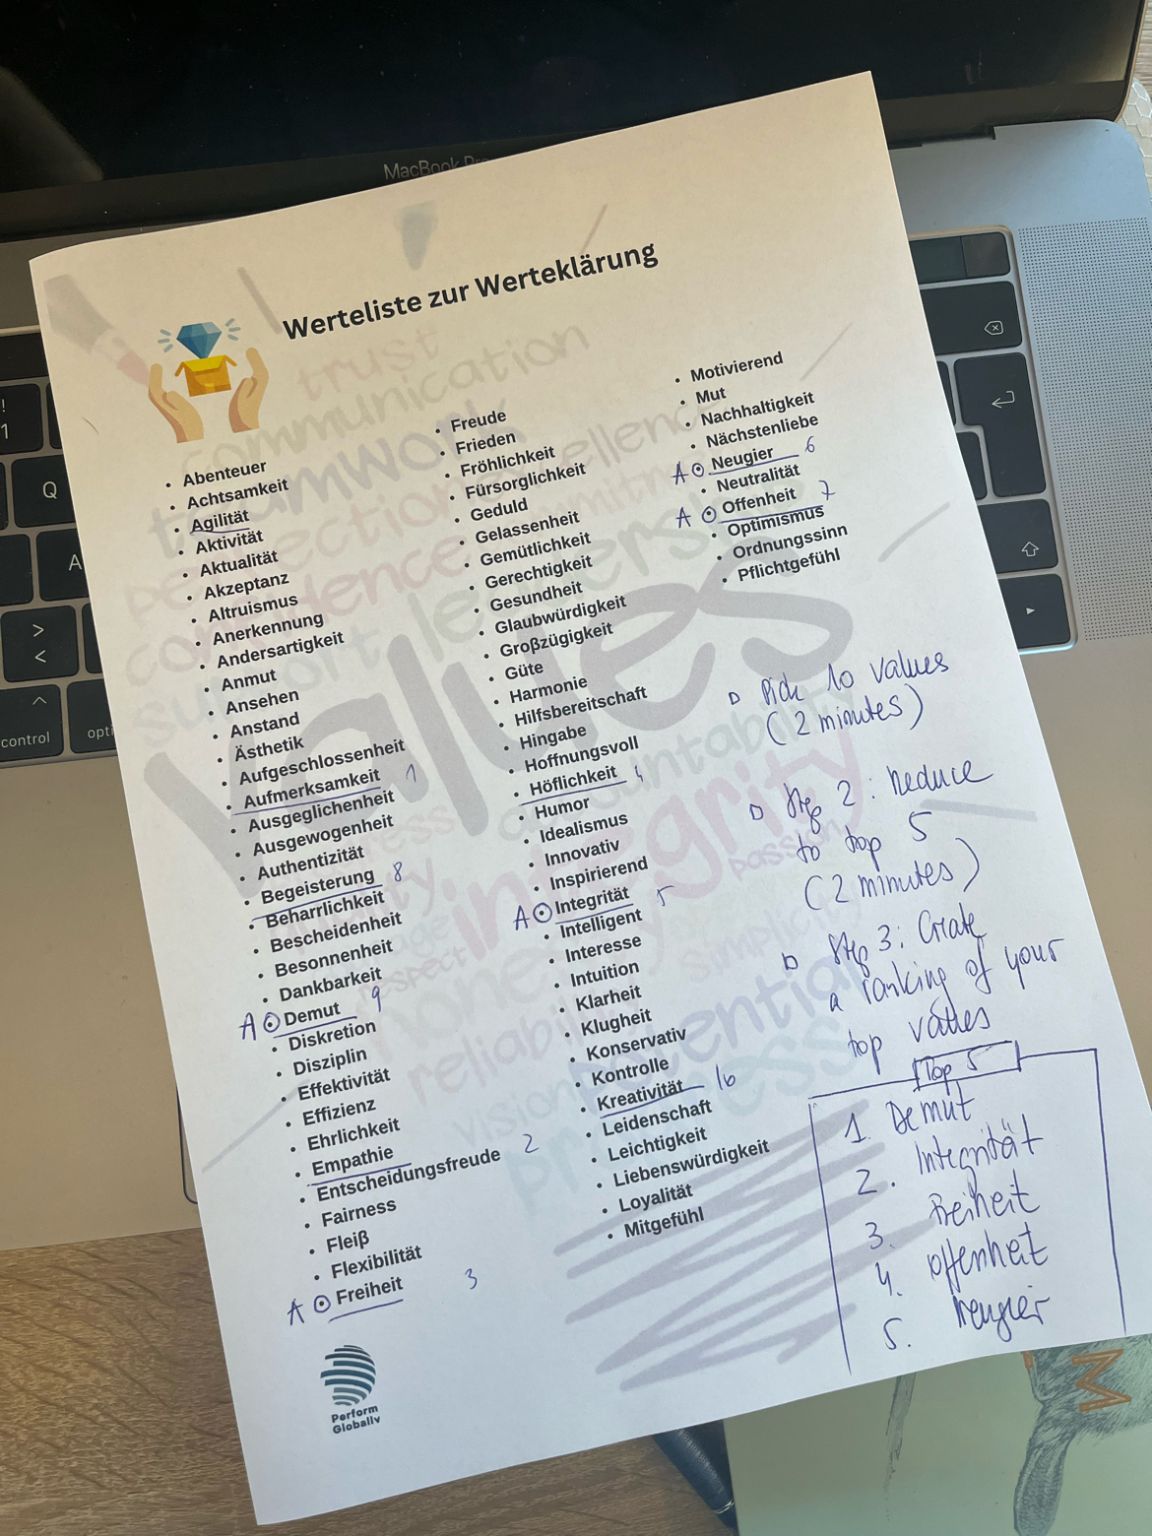 MacBook Pro
Werteliste zur Werteklärung
• Abenteuer
• Achtsamkeit
• Agilität
• Aktivität
• Aktualität
• Akzeptanz
• Altruismus
• Anerkennung
• Andersartigkeit
• Anmut
• Ansehen
• Anstand
• Ästhetik
• Aufgeschlossenheit
• Aufmerksamkeit 1
• Ausgeglichenheit
• Ausgewogenheit
• Authentizität
• Begeisterung 8
• Beharrlichkeit
• Bescheidenheit
• Besonnenheit
• Dankbarkeit
A • Demut 9
• Diskretion
• Disziplin
• Effektivität
• Effizienz
• Ehrlichkeit
• Empathie 2
• Entscheidungsfreude
• Fairness
• Fleiß
• Flexibilität
A • Freiheit 3
• Freude
• Frieden
• Fröhlichkeit
• Fürsorglichkeit
• Geduld
• Gelassenheit
• Gemütlichkeit
• Gerechtigkeit
• Gesundheit
• Glaubwürdigkeit
• Großzügigkeit
• Güte
• Harmonie
• Hilfsbereitschaft
• Hingabe
• Hoffnungsvoll
• Höflichkeit 4
• Humor
• Idealismus
• Innovativ
• Inspirierend
A • Integrität 5
• Intelligent
• Interesse
• Intuition
• Klarheit
• Klugheit
• Konservativ
• Kontrolle
• Kreativität 10
• Leidenschaft
• Leichtigkeit
• Liebenswürdigkeit
• Loyalität
• Mitgefühl
• Motivierend
• Mut
• Nachhaltigkeit
• Nächstenliebe
A • Neugier 6
• Neutralität
A • Offenheit 7
• Optimismus
• Ordnungssinn
• Pflichtgefühl
Pick 10 values
(2 minutes)
Step 2: Reduce
to top 5
(2 minutes)
Step 3: Create
a ranking of your
top values
Top 5
1. Demut
2. Integrität
3. Freiheit
4. Offenheit
5. Neugier
Perform
Globally
trust
communication
teamwork
values
integrity
reliability
potential
vision
respect
passion
Q
A
control
opti
!
1
>
<